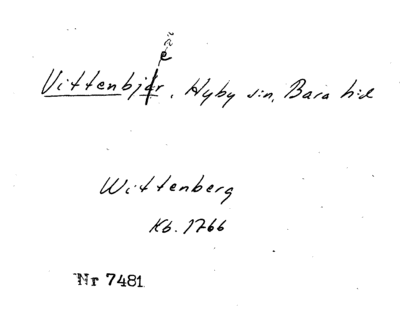 e
Vittenbjer, Hyby sn, Bara hd
Wittenberg
Kb. 1766
Nr 7481